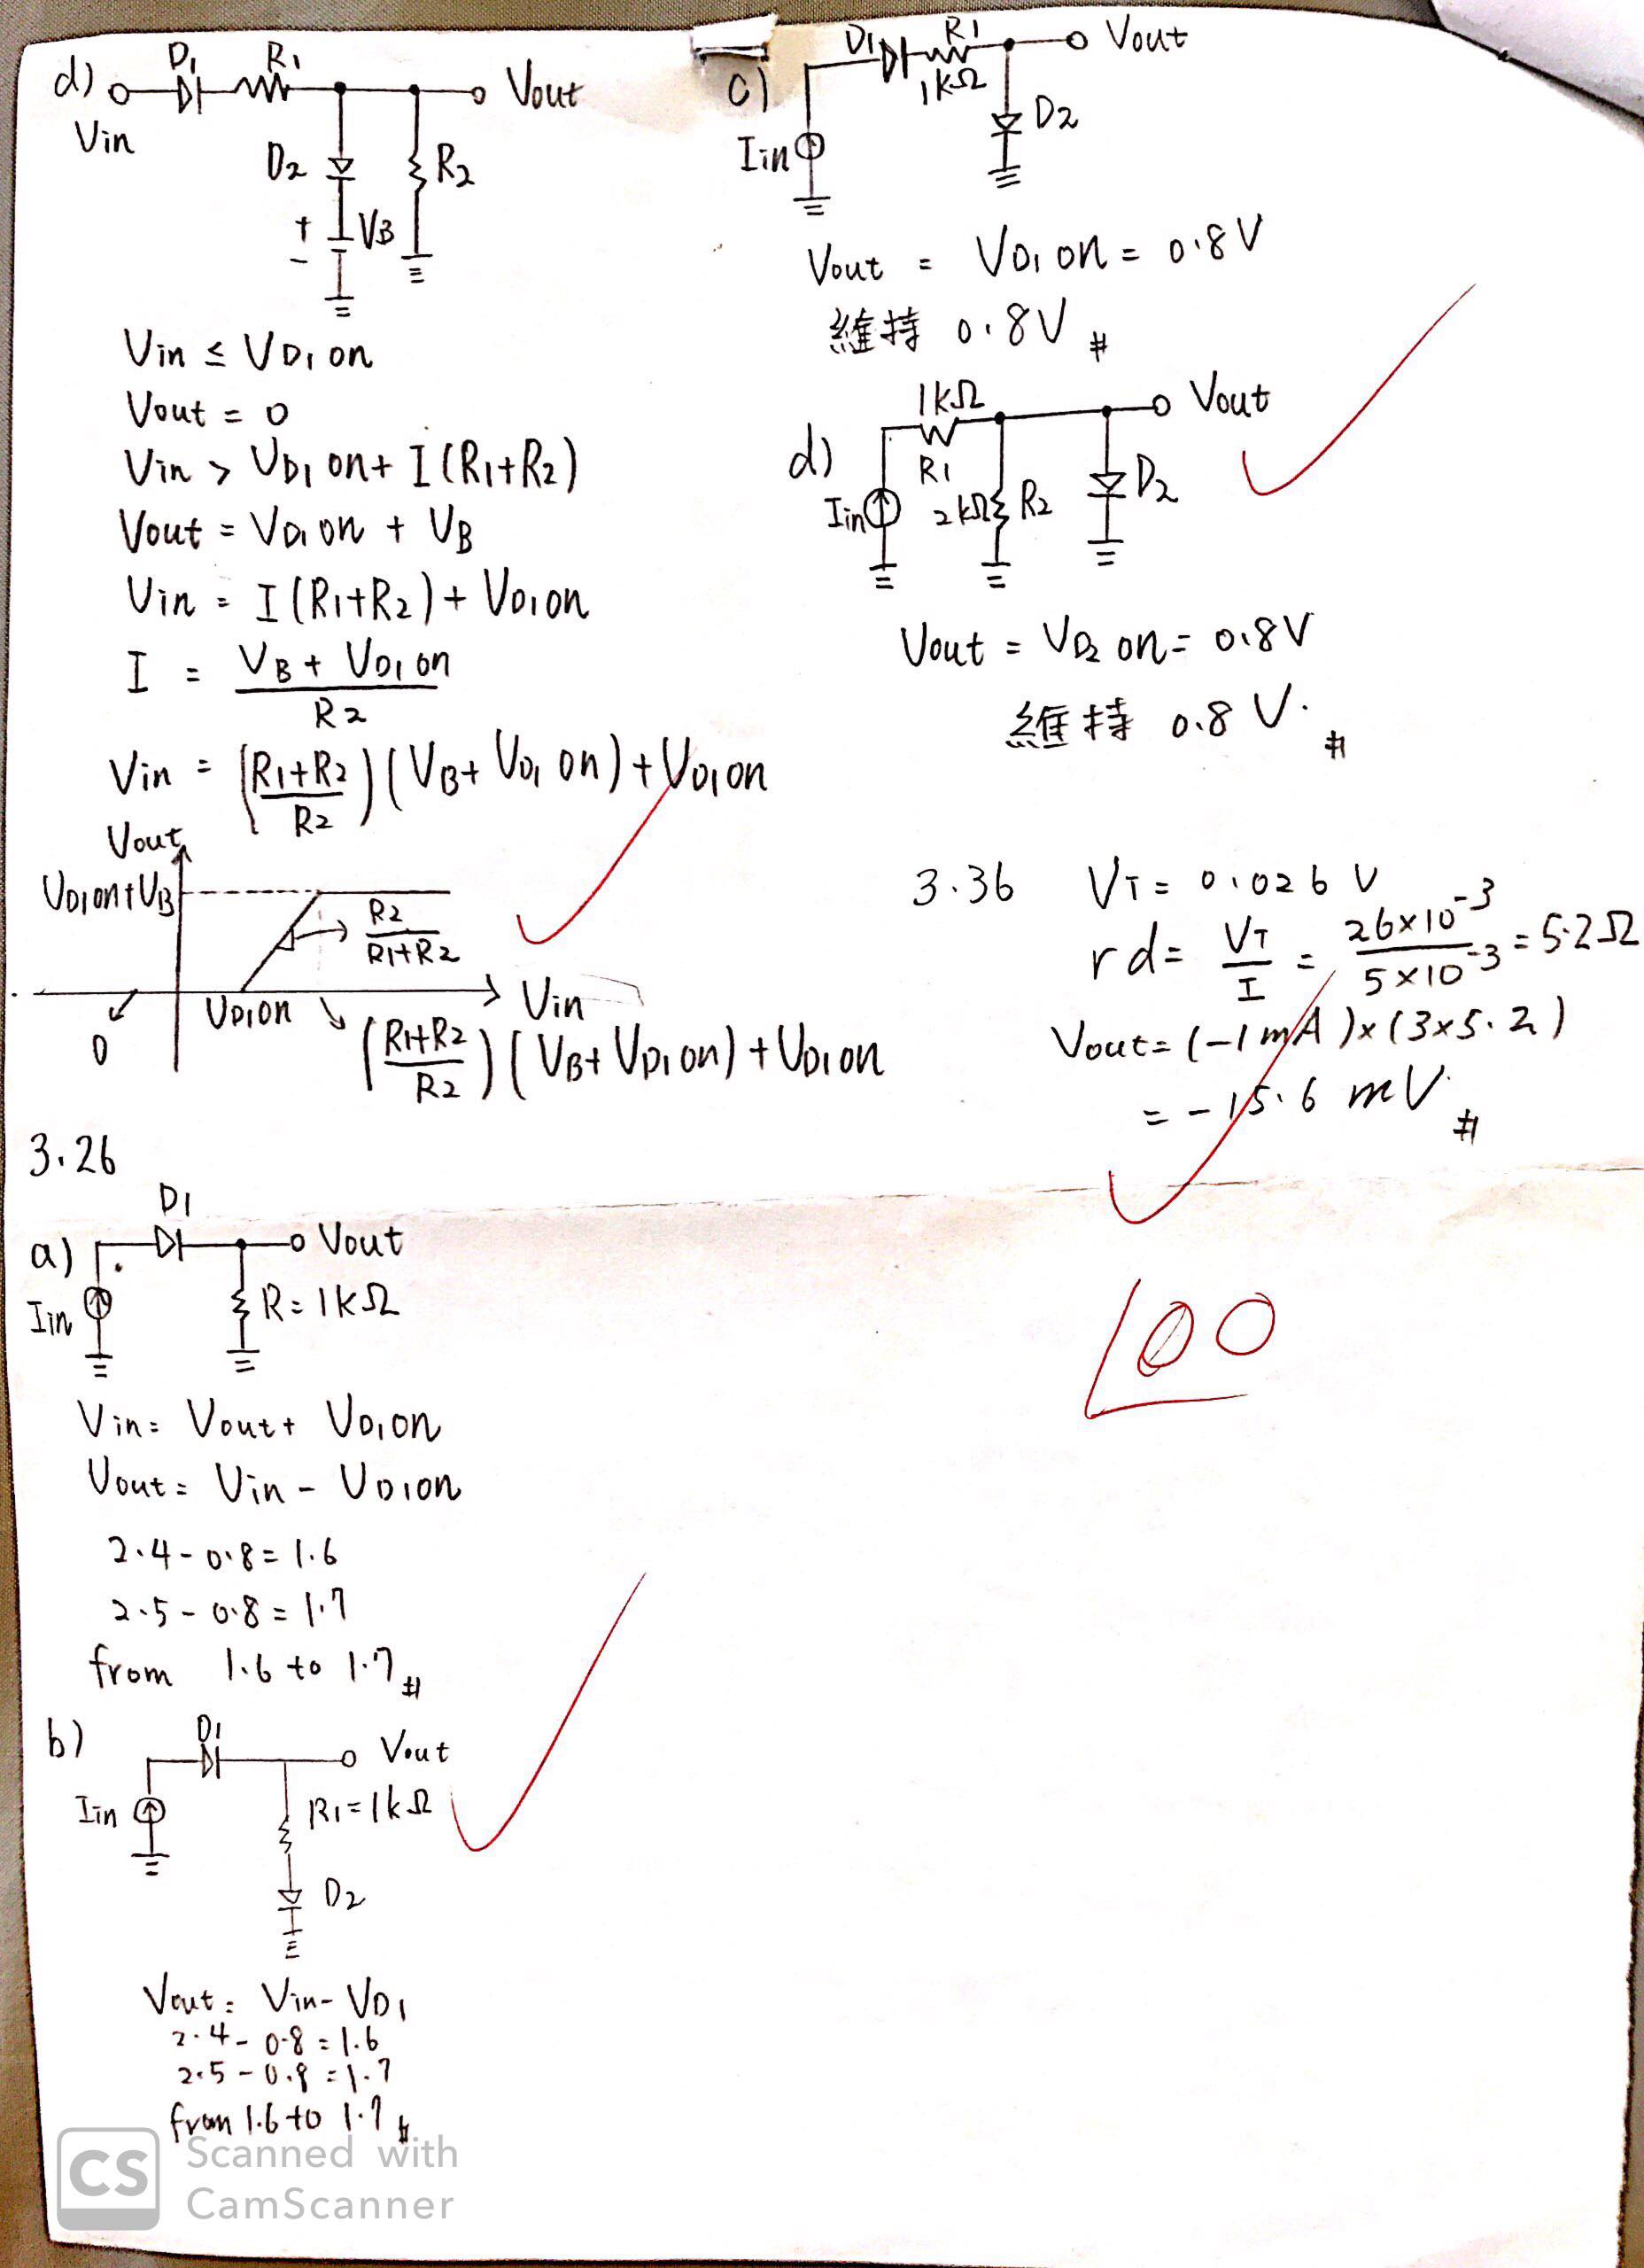 d) D1 R1 Vout
Vin
D2 R2
+ VB
-
Vin ≤ VD1 on
Vout = 0
Vin > VD1 on + I(R1+R2)
Vout = VD1 on + VB
Vin = I(R1+R2) + VD1on
I = (VB + VD1 on)/R2
Vin = ((R1+R2)/R2)(VB + VD1 on) + VD1on
Vout
VD1on+VB
R2/(R1+R2)
Vin
0 VD1on
((R1+R2)/R2)(VB + VD1 on) + VD1on
3.26
a) D1 Vout
Iin R = 1kΩ
Vin = Vout + VD1on
Vout = Vin - VD1on
2.4 - 0.8 = 1.6
2.5 - 0.8 = 1.7
from 1.6 to 1.7 #
b) D1 Vout
Iin R1 = 1kΩ
D2
Vout = Vin - VD1
2.4 - 0.8 = 1.6
2.5 - 0.8 = 1.7
from 1.6 to 1.7 #
c) D1 R1 Vout
1kΩ
Iin D2
Vout = VD1 on = 0.8V
維持 0.8V #
d) 1kΩ Vout
R1
Iin 2kΩ R2 D2
Vout = VD2 on = 0.8V
維持 0.8V. #
3.36 VT = 0.026 V
rd = VT/I = (26×10⁻³)/(5×10⁻³) = 5.2Ω
Vout = (-1mA)×(3×5.2)
= -15.6 mV. #
100
CS Scanned with
CamScanner